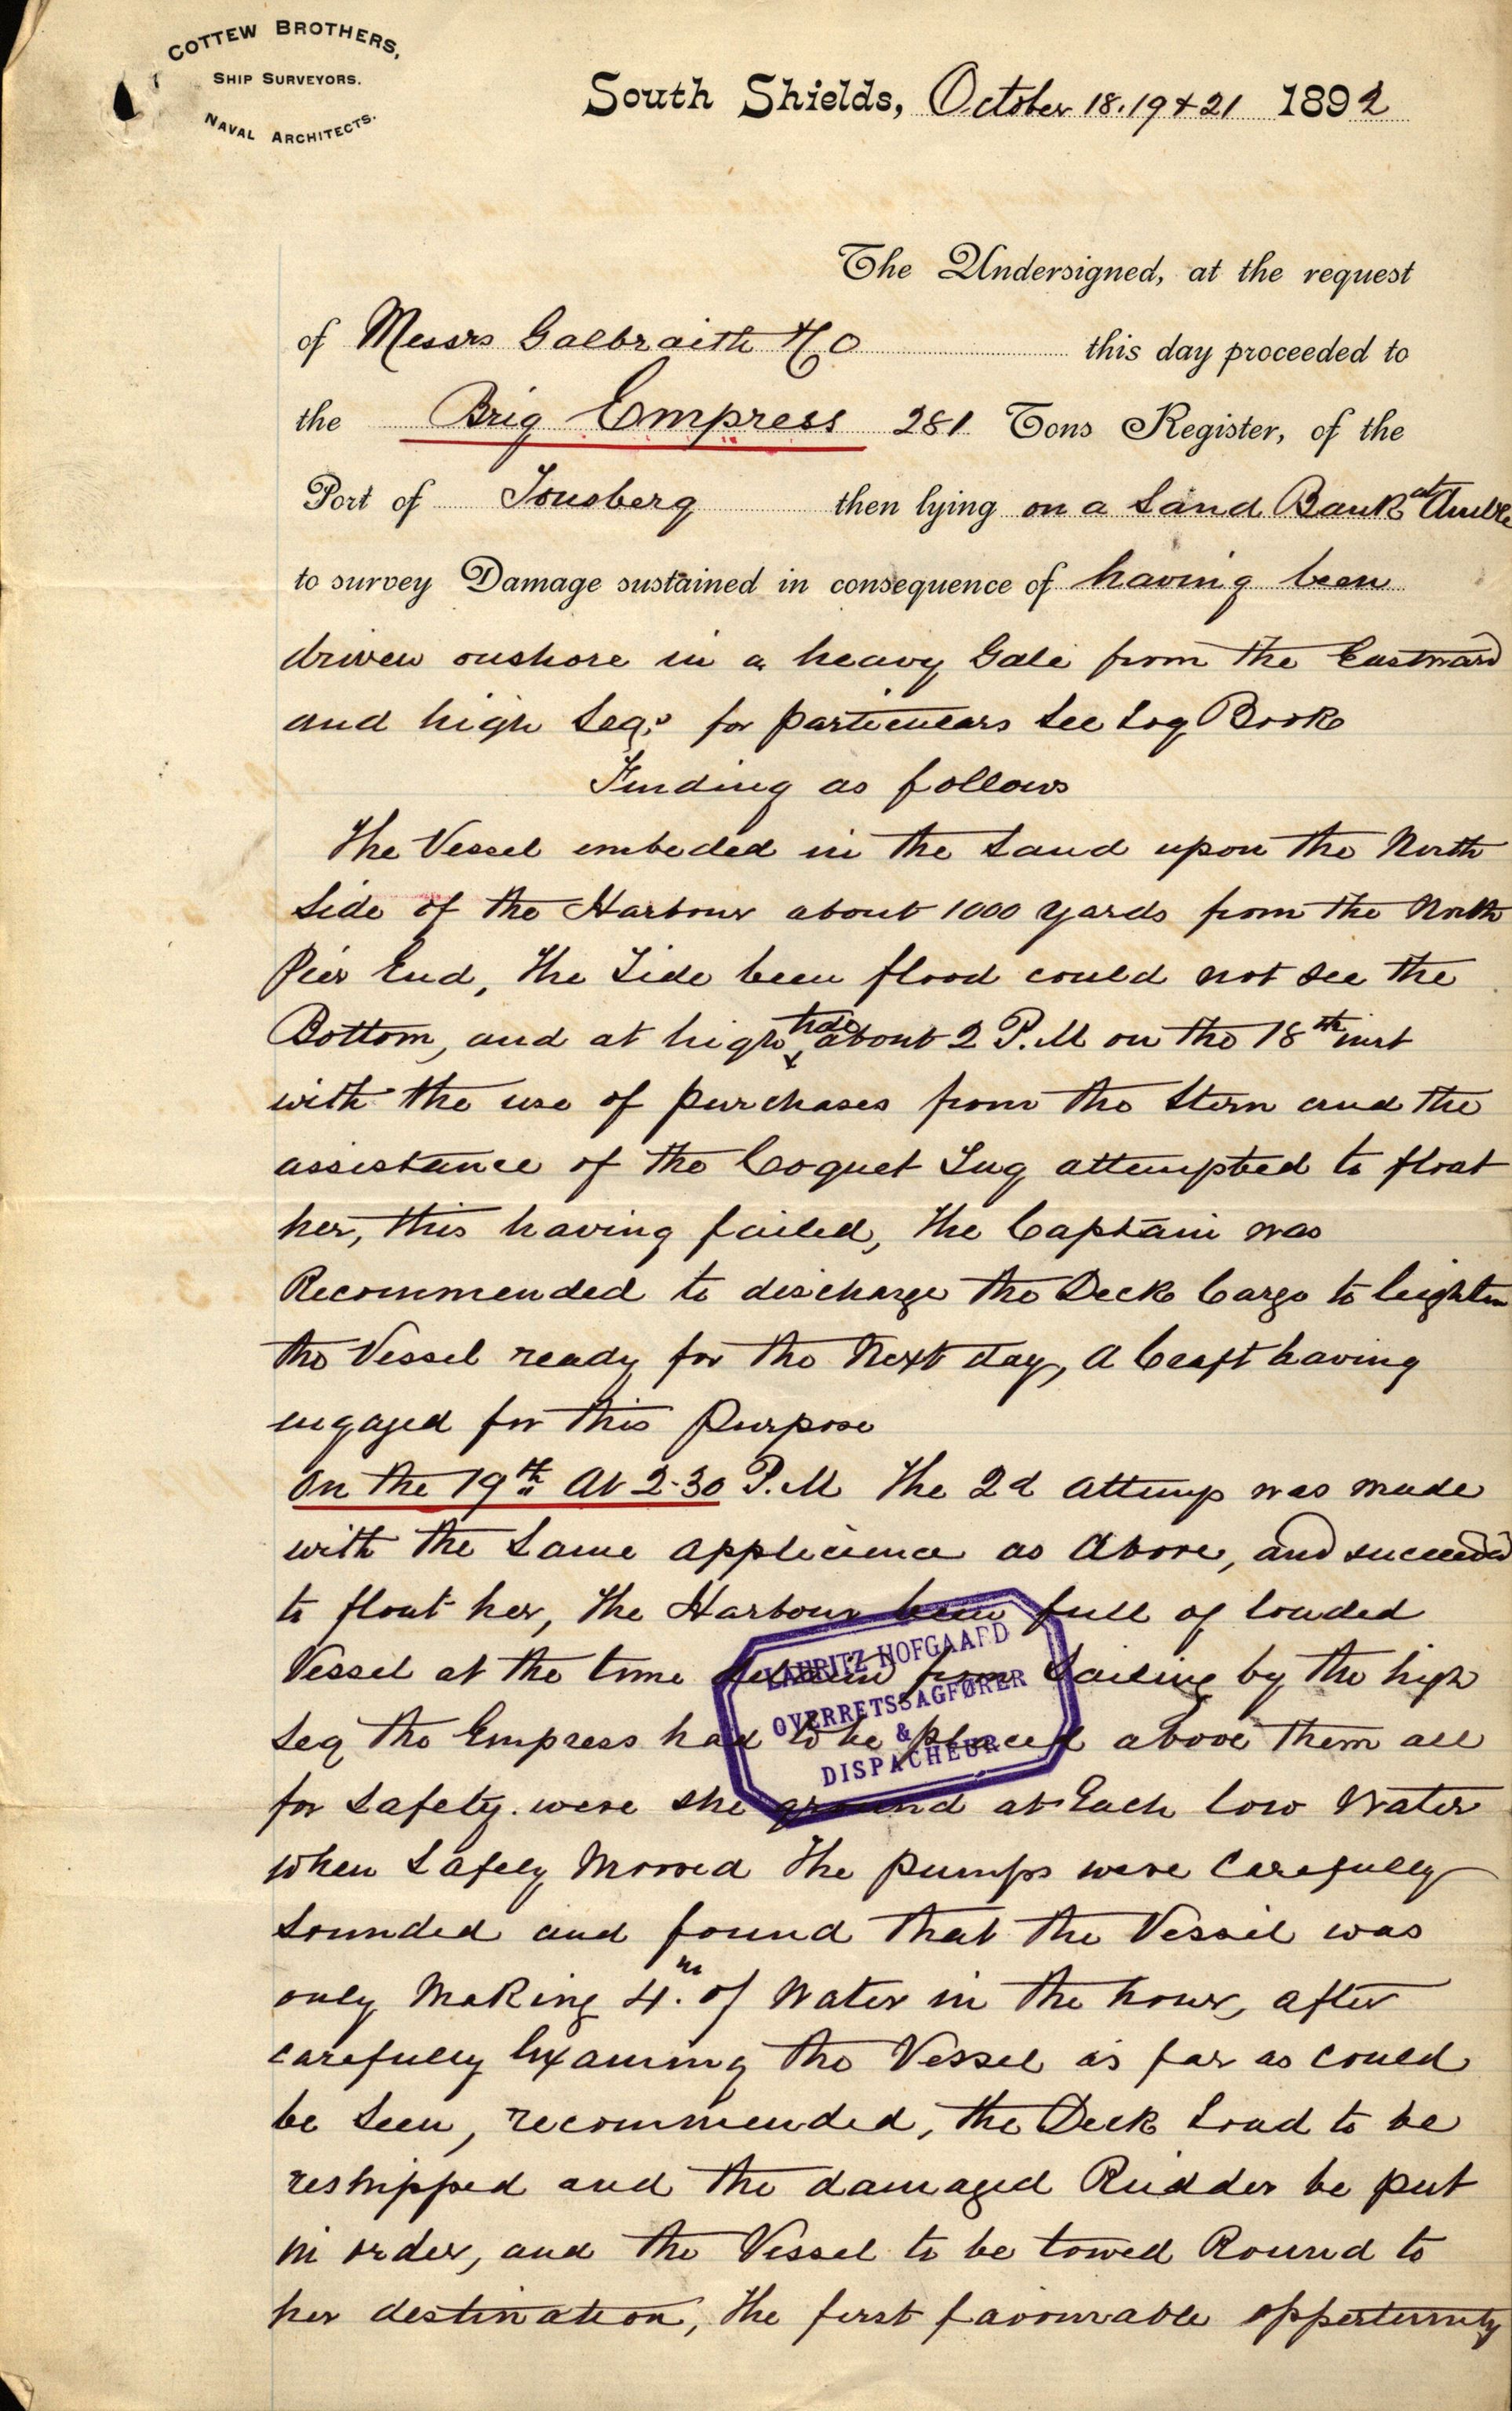 COTTEW BROTHERS,
SHIP SURVEYORS.
NAVAL ARCHITECTS.
South Shields, October 18. 19 & 21 1892
The Undersigned, at the request
of Messrs Galbraith & Co this day proceeded to
the Brig Empress 281 Tons Register, of the
Port of Tonsberg then lying on a Sand Bank at Amble
to survey Damage sustained in consequence of having been
driven onshore in a heavy Gale from the Eastward
and high Sea, for particulars see Log Book
Finding as follows
The Vessel embeded in the Sand upon the North
Side of the Harbour about 1000 yards from the North
Pier End, The Tide been flood could not see the
Bottom, and at high tide about 2 P.M on the 18th inst
with the use of purchases from the Stern and the
assistance of the Coquet Tug attempted to float
her, this having failed, The Captain was
Recommended to discharge the Deck Cargo to leighten
the Vessel ready for the Next day, A Craft having
engaged for this Purpose
On the 19th At 2-30 P.M The 2d Attemp was made
with the Same applicience as Above, and succeeded
to float her, The Harbour been full of loaded
Vessel at the time from Sailing by the high
Sea the Empress had to be placed above them all
for Safety. were she ground at Each low Water
when Safely Moored The pumps were Carefully
Sounded and found that the Vessel was
only Making 4in of Water in the hour, after
carefully Examing the Vessel as far as could
be Seen, recommended, the Deck Load to be
reshipped and the damaged Rudder be put
in order, and the Vessel to be towed Round to
her destination, The first favourable oppertunity
LAURITZ HOFGAARD
OVERRETSSAGFØRER
&
DISPACHEUR